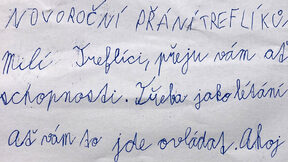 NOVOROČNÍ PŘÁNÍ TREFLÍKŮ
Milí Treflíci, přeju vám ať
schopnosti. Třeba jako lítání
Ať vám to jde ovládat. Ahoj